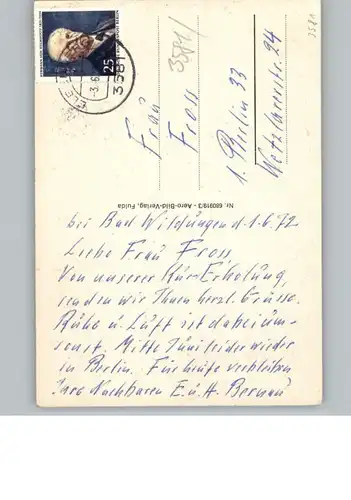 3581
25
3581
-3.6
3581/
Frau
Fross
1 Berlin 33
Wetzlarerstr. 24
Nr. 68091/3 - Aero-Bild-Verlag, Fulda
bei Bad Wildungen d. 1.6.72
Liebe Frau Fross,
Von unserer Kur-Erholung,
senden wir Ihnen herzl. Grüsse.
Ruhe u. Luft ist dabei um-
sonst. Mitte Juni leider wieder
in Berlin. Für heute verbleiben
Ihre Nachbaren E. u. H. Bernau